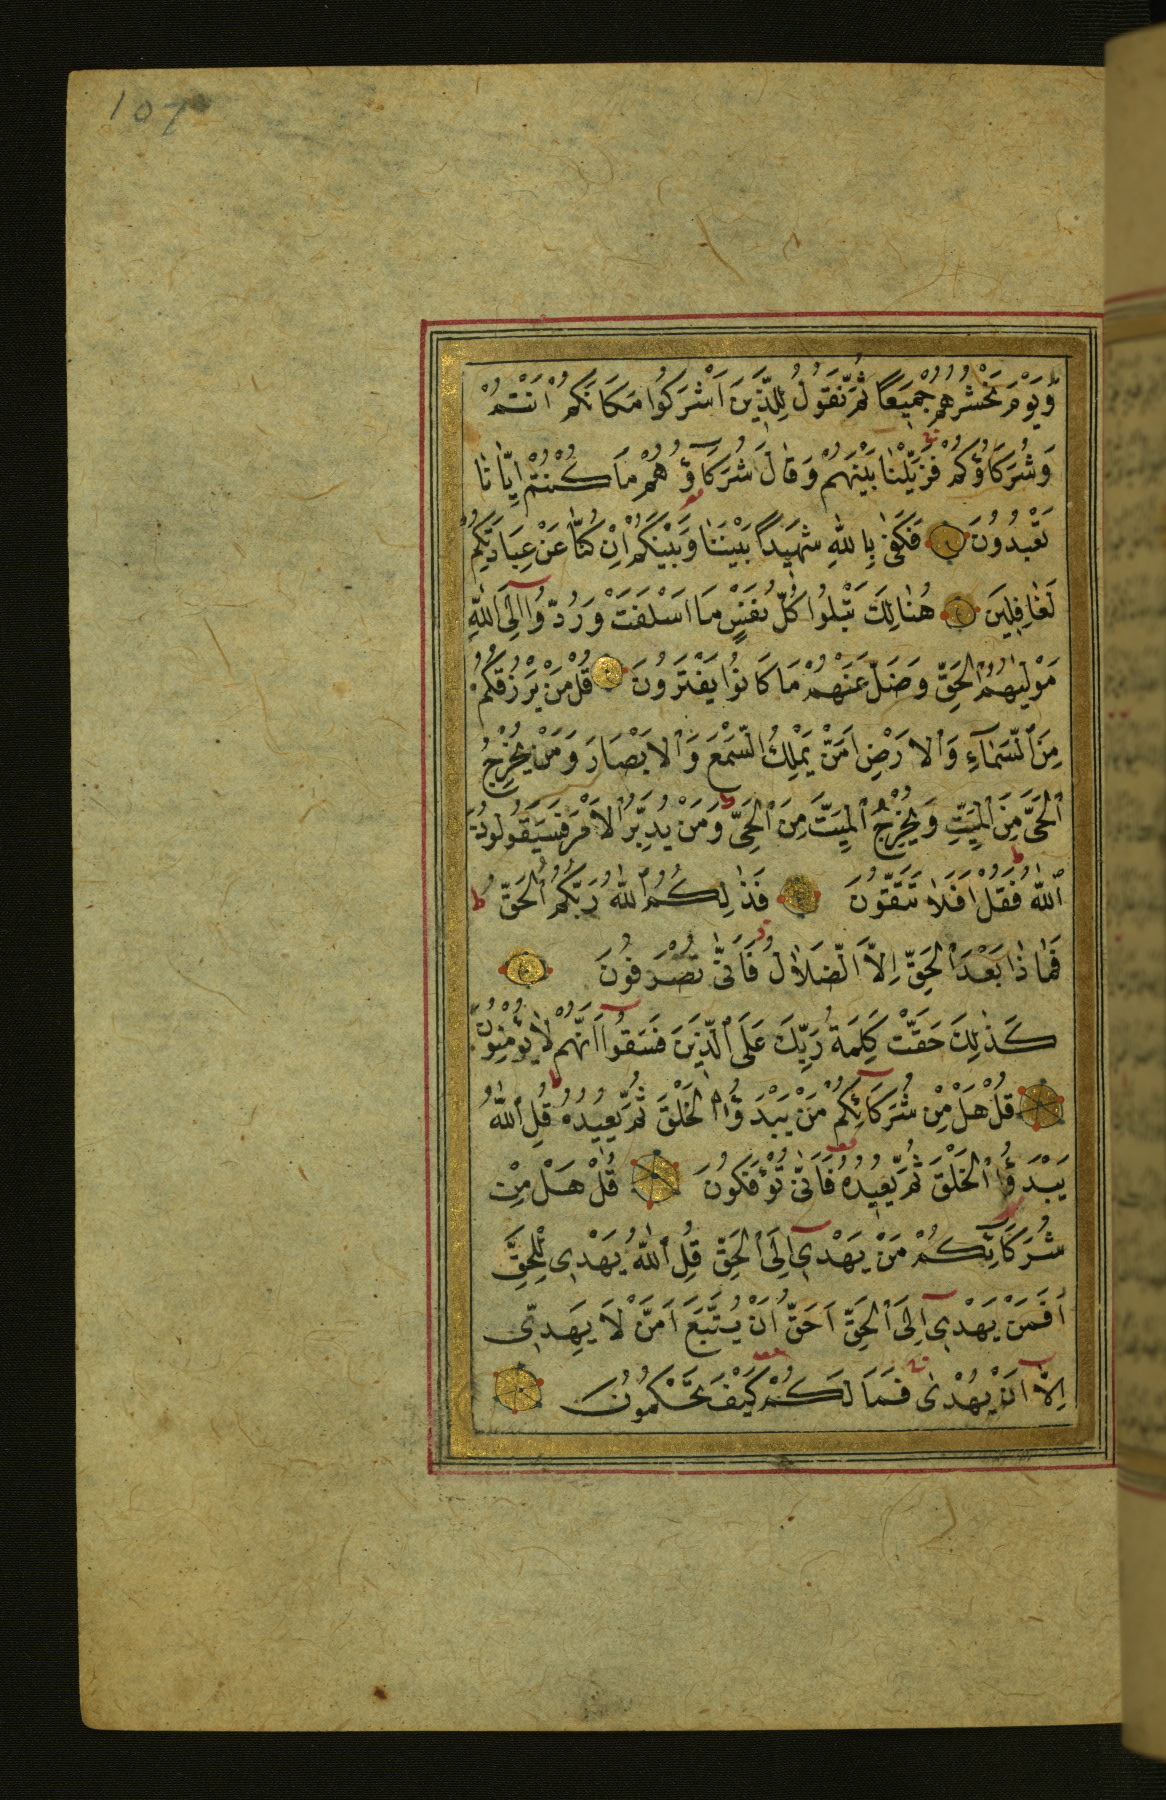 107
وَيَوْمَ نَحْشُرُهُمْ جَمِيعًا ثُمَّ نَقُولُ لِلَّذِينَ اَشْرَكُوا مَكَانَكُمْ اَنْتُمْ
وَشُرَكَاؤُكُمْ فَزَيَّلْنَا بَيْنَهُمْ وَقَالَ شُرَكَاؤُهُمْ مَا كُنْتُمْ اِيَّانَا
تَعْبُدُونَ فَكَفٰى بِاللهِ شَهِيدًا بَيْنَنَا وَبَيْنَكُمْ اِنْ كُنَّا عَنْ عِبَادَتِكُمْ
لَغَافِلِينَ هُنَالِكَ تَبْلُوا كُلُّ نَفْسٍ مَا اَسْلَفَتْ وَرُدُّوا اِلَى اللهِ
مَوْلٰيهُمُ الْحَقِّ وَضَلَّ عَنْهُمْ مَا كَانُوا يَفْتَرُونَ قُلْ مَنْ يَرْزُقُكُمْ
مِنَ السَّمَآءِ وَالْاَرْضِ اَمَّنْ يَمْلِكُ السَّمْعَ وَالْاَبْصَارَ وَمَنْ يُخْرِجُ
الْحَيَّ مِنَ الْمَيِّتِ وَيُخْرِجُ الْمَيِّتَ مِنَ الْحَيِّ وَمَنْ يُدَبِّرُ الْاَمْرَ فَسَيَقُولُونَ
اللهُ فَقُلْ اَفَلَا تَتَّقُونَ فَذٰلِكُمُ اللهُ رَبُّكُمُ الْحَقُّ
فَمَاذَا بَعْدَ الْحَقِّ اِلَّا الضَّلَالُ فَاَنّٰى تُصْرَفُونَ
كَذٰلِكَ حَقَّتْ كَلِمَةُ رَبِّكَ عَلَى الَّذِينَ فَسَقُوا اَنَّهُمْ لَا يُؤْمِنُونَ
قُلْ هَلْ مِنْ شُرَكَائِكُمْ مَنْ يَبْدَؤُا الْخَلْقَ ثُمَّ يُعِيدُهُ قُلِ اللهُ
يَبْدَؤُا الْخَلْقَ ثُمَّ يُعِيدُهُ فَاَنّٰى تُؤْفَكُونَ قُلْ هَلْ مِنْ
شُرَكَائِكُمْ مَنْ يَهْدِي اِلَى الْحَقِّ قُلِ اللهُ يَهْدِي لِلْحَقِّ
اَفَمَنْ يَهْدِي اِلَى الْحَقِّ اَحَقُّ اَنْ يُتَّبَعَ اَمَّنْ لَا يَهِدِّي
اِلَّا اَنْ يُهْدٰى فَمَا لَكُمْ كَيْفَ تَحْكُمُونَ